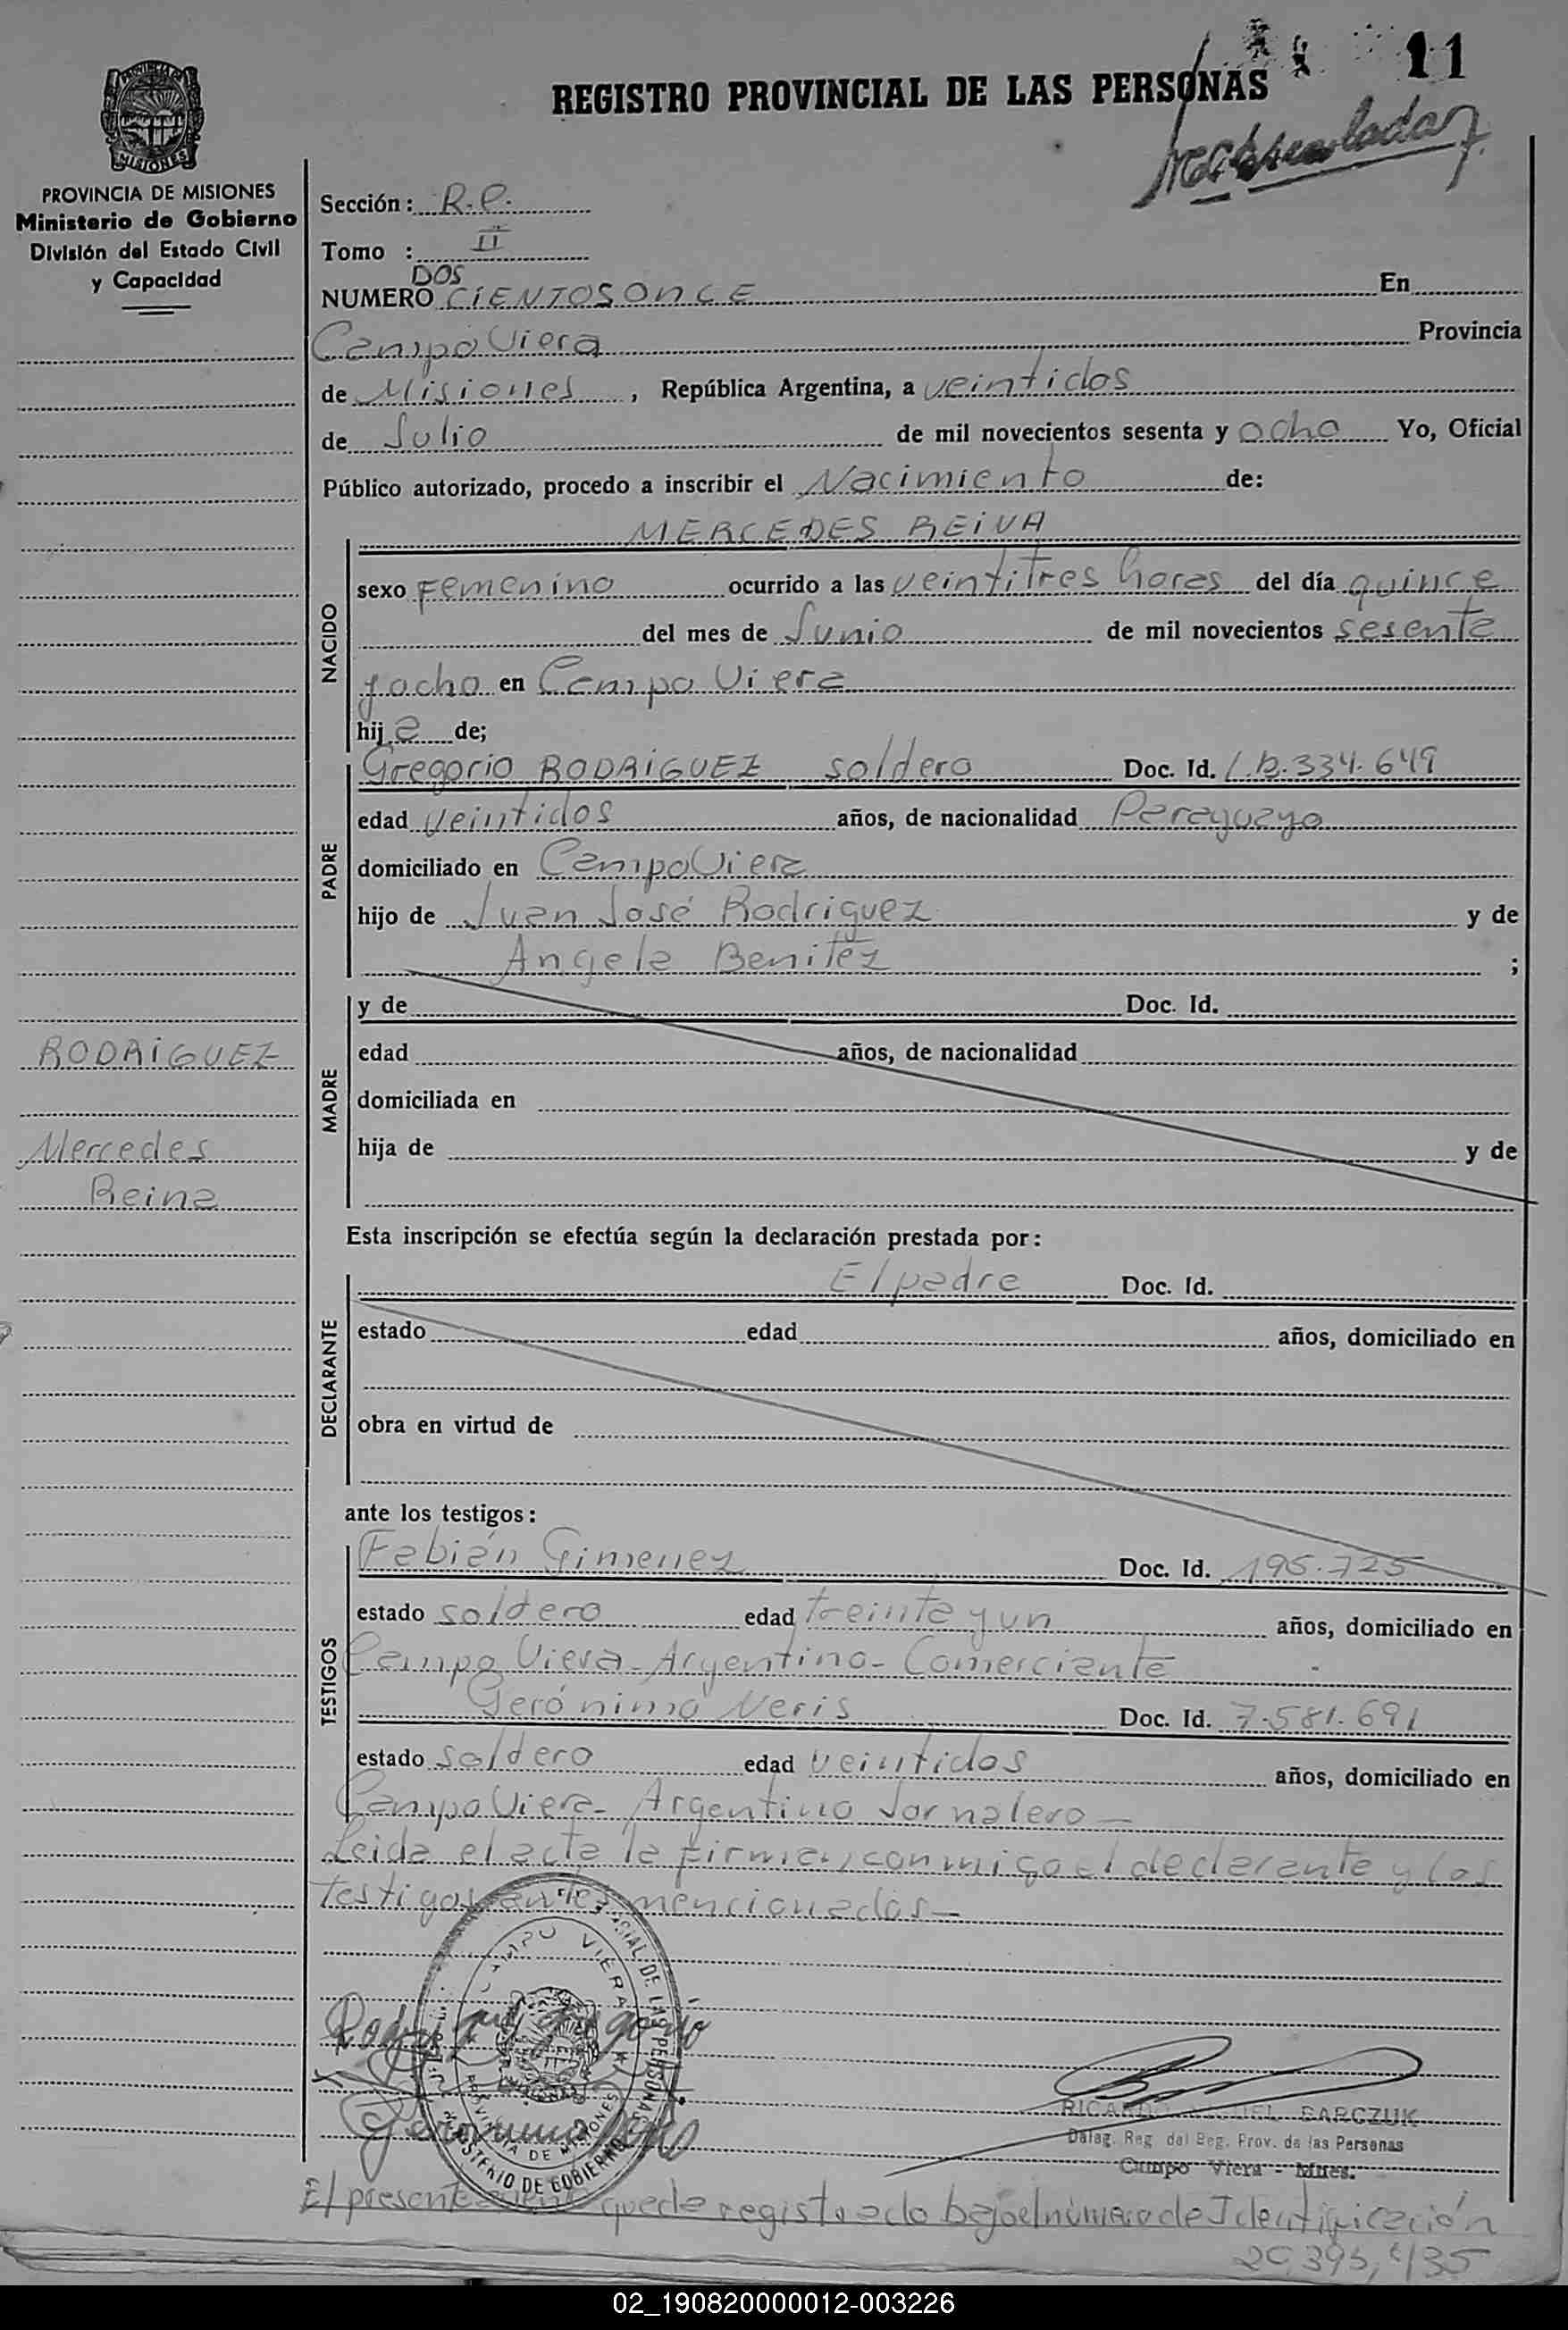 11
REGISTRO PROVINCIAL DE LAS PERSONAS
MISIONES
PROVINCIA DE MISIONES
Ministerio de Gobierno
División del Estado Civil
y Capacidad
RODRIGUEZ
Mercedes
Reina
Sección: R.P.
Tomo : II
DOS
NUMERO CIENTOS ONCE En
Campo Viera Provincia
de Misiones , República Argentina, a veintidos
de Julio de mil novecientos sesenta y ocho Yo, Oficial
Público autorizado, procedo a inscribir el Nacimiento de:
MERCEDES REINA
NACIDO
sexo Femenino ocurrido a las veintitres horas del día quince
del mes de Junio de mil novecientos sesenta
y ocho en Campo Viera
hija de;
PADRE
Gregorio RODRIGUEZ soltero Doc. Id. 334.649
edad veintidos años, de nacionalidad Paraguayo
domiciliado en Campo Viera
hijo de Juan José Rodriguez y de
Angela Benitez ;
MADRE
y de Doc. Id.
edad años, de nacionalidad
domiciliada en
hija de y de
Esta inscripción se efectúa según la declaración prestada por:
DECLARANTE
El padre Doc. Id.
estado edad años, domiciliado en
obra en virtud de
ante los testigos:
TESTIGOS
Fabián Gimenez Doc. Id. 195.725
estado soltero edad treinta y un años, domiciliado en
Campo Viera - Argentino - Comerciante
Gerónimo Neris Doc. Id. 7.581.691
estado soltero edad veintidos años, domiciliado en
Campo Viera - Argentino Jornalero -
Leida el acta la firman conmigo el declarante y los
testigos antes mencionados -
CAMPO VIERA
PROVINCIA DE MISIONES
MINISTERIO DE GOBIERNO
RICARDO MIGUEL BARCZUK
Deleg. Reg. del Reg. Prov. de las Personas
Campo Viera - Mnes.
El presente queda registrado bajo el número de Identificación
20,395,435
02_190820000012-003226